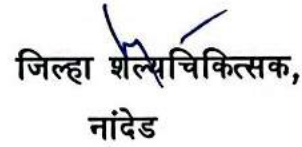 जिल्हा शल्यचिकित्सक,
नांदेड